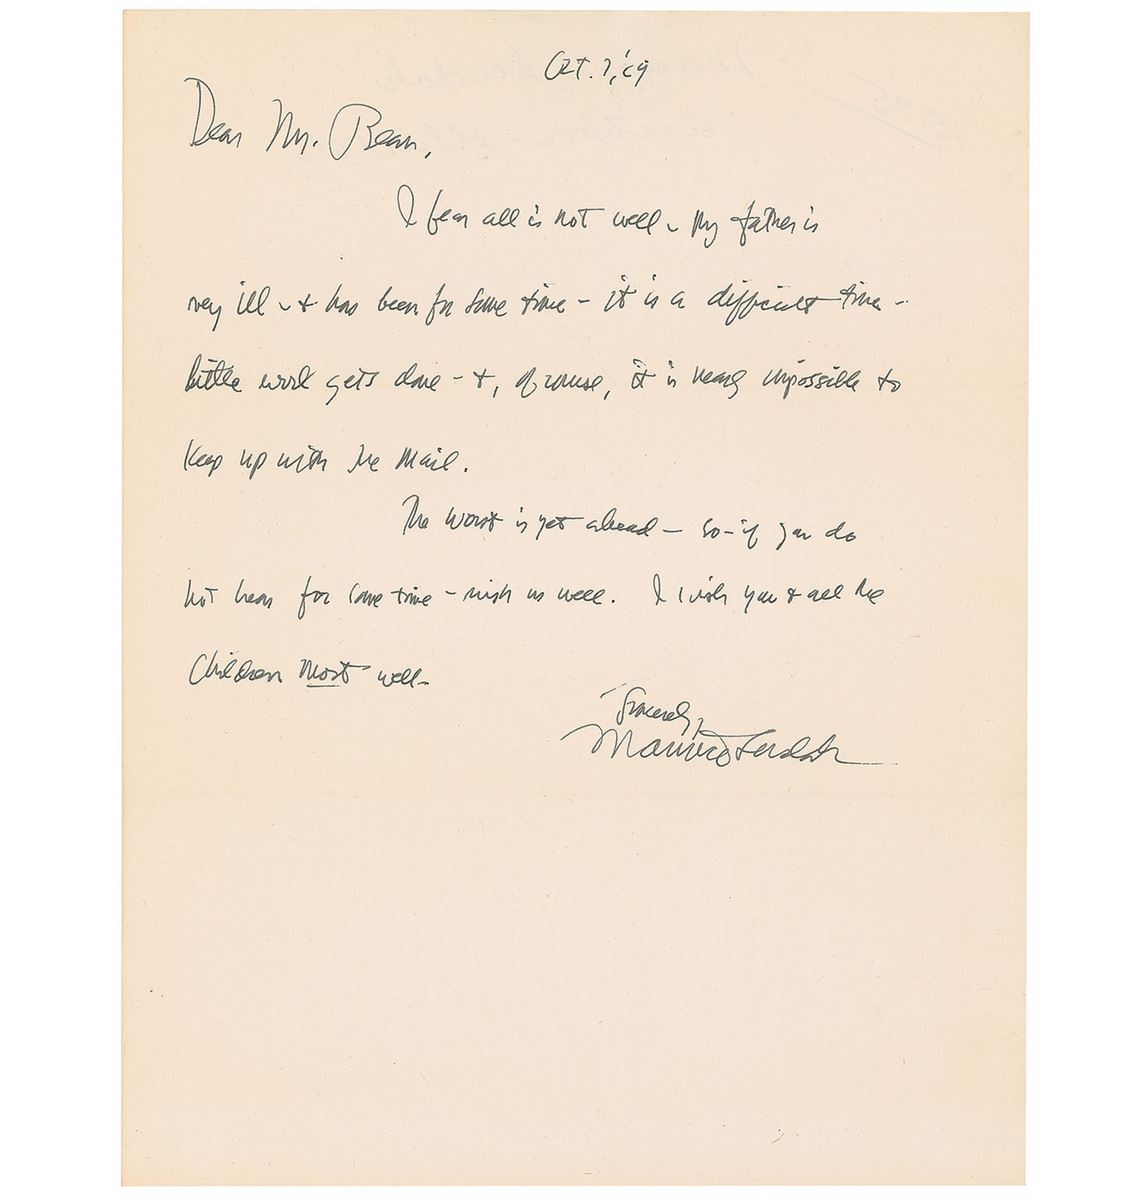 Oct. 7, '69
Dear Mr. Bean,
I fear all is not well - My father is
very ill - & has been for some time - it is a difficult time -
little work gets done - &, of course, it is nearly impossible to
keep up with the mail.
The worst is yet ahead - so - if you do
not hear for some time - wish us well. I wish you & all the
children most well -
Sincerely,
Maurice Sendak